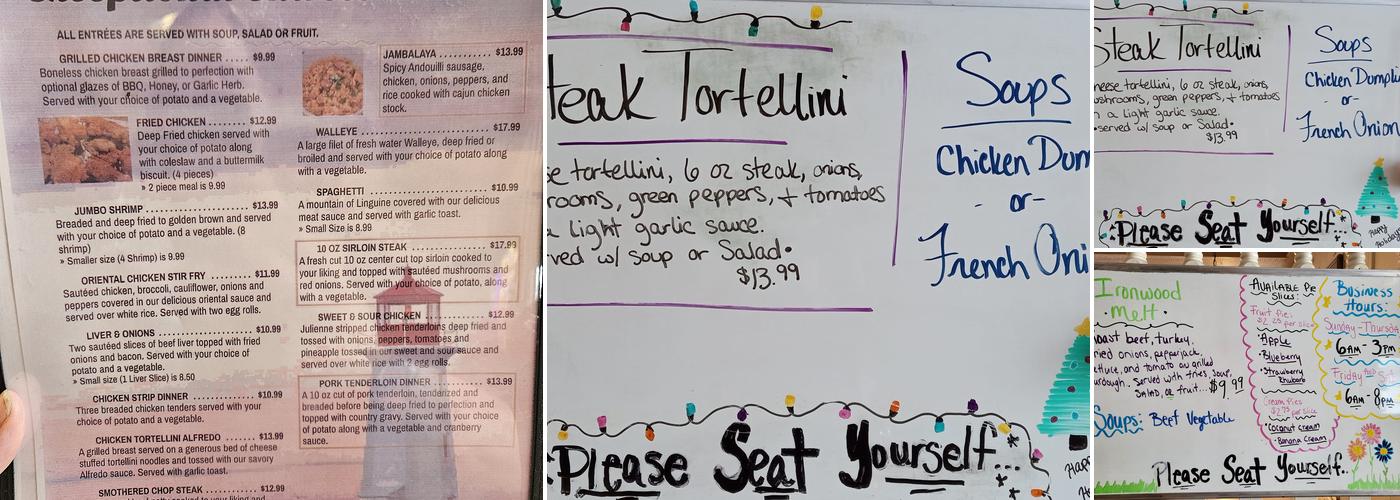 ALL ENTRÉES ARE SERVED WITH SOUP, SALAD OR FRUIT.
GRILLED CHICKEN BREAST DINNER ..... $9.99
Boneless chicken breast grilled to perfection with
optional glazes of BBQ, Honey, or Garlic Herb.
Served with your choice of potato and a vegetable.
FRIED CHICKEN ........ $12.99
Deep Fried chicken served with
your choice of potato along
with coleslaw and a buttermilk
biscuit. (4 pieces)
» 2 piece meal is 9.99
JUMBO SHRIMP ........................ $13.99
Breaded and deep fried to golden brown and served
with your choice of potato and a vegetable. (8
shrimp)
» Smaller size (4 Shrimp) is 9.99
ORIENTAL CHICKEN STIR FRY ......... $11.99
Sautéed chicken, broccoli, cauliflower, onions and
peppers covered in our delicious oriental sauce and
served over white rice. Served with two egg rolls.
LIVER & ONIONS ...................... $10.99
Two sautéed slices of beef liver topped with fried
onions and bacon. Served with your choice of
potato and a vegetable.
» Small size (1 Liver Slice) is 8.50
CHICKEN STRIP DINNER ............... $10.99
Three breaded chicken tenders served with your
choice of potato and vegetable.
CHICKEN TORTELLINI ALFREDO ....... $13.99
A grilled breast served on a generous bed of cheese
stuffed tortellini noodles and tossed with our savory
Alfredo sauce. Served with garlic toast.
SMOTHERED CHOP STEAK ............. $12.99
JAMBALAYA ........... $13.99
Spicy Andouilli sausage,
chicken, onions, peppers, and
rice cooked with cajun chicken
stock.
WALLEYE ............................. $17.99
A large filet of fresh water Walleye, deep fried or
broiled and served with your choice of potato along
with a vegetable.
SPAGHETTI ........................... $10.99
A mountain of Linguine covered with our delicious
meat sauce and served with garlic toast.
» Small Size is 8.99
10 OZ SIRLOIN STEAK .................. $17.99
A fresh cut 10 oz center cut top sirloin cooked to
your liking and topped with sautéed mushrooms and
red onions. Served with your choice of potato, along
with a vegetable.
SWEET & SOUR CHICKEN ............... $12.99
Julienne stripped chicken tenderloins deep fried and
tossed with onions, peppers, tomatoes and
pineapple tossed in our sweet and sour sauce and
served over white rice with 2 egg rolls.
PORK TENDERLOIN DINNER ............ $13.99
A 10 oz cut of pork tenderloin, tenderized and
breaded before being deep fried to perfection and
topped with country gravy. Served with your choice
of potato along with a vegetable and cranberry
sauce.
teak Tortellini
se tortellini, 6 oz steak, onions,
rooms, green peppers, + tomatoes
a light garlic sauce.
ved w/ soup or Salad.
$13.99
Soups
Chicken Dum
-or-
French Oni
Please Seat Yourself...
Happ
Steak Tortellini
heese tortellini, 6 oz steak, onions,
ushrooms, green peppers, + tomatoes
n a light garlic sauce.
served w/ soup or Salad.
$13.99
Soups
Chicken Dumpli
-or-
French Onion
Please Seat Yourself...
Happy
Holidays
Ironwood
Melt
oast beef, turkey,
ried onions, pepperjack,
ettuce, and tomato on grilled
urdough. Served with fries, soup,
salad, or fruit... $9.99
Soups: Beef Vegetable
Available Pie
Slices:
Fruit Pies:
$2.25 per slice
•Apple
•Blueberry
•Strawberry
Rhubarb
Cream Pies
$2.75 per slice
•Coconut Cream
•Banana Cream
Business
Hours:
Sunday-Thursda
6AM-3PM
Friday
6AM-8PM
Please Seat Yourself..